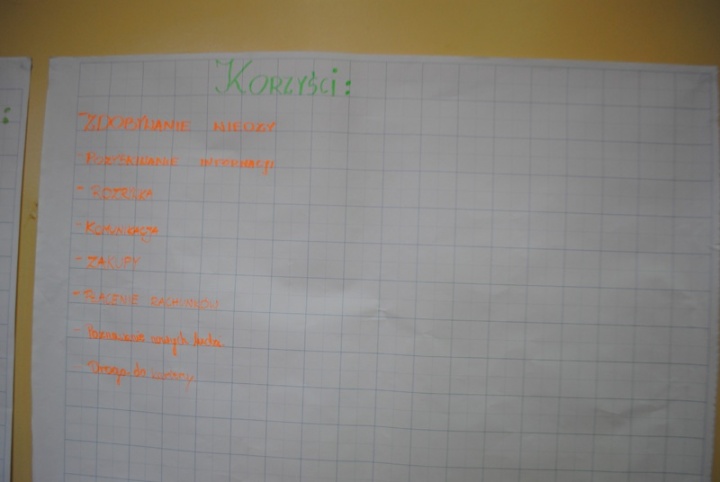 Korzyści:
- ZDOBYWANIE WIEDZY
- POZYSKIWANIE INFORMACJI
- ROZRYWKA
- KOMUNIKACJA
- ZAKUPY
- PŁACENIE RACHUNKÓW
- Poznawanie nowych ludzi
- Droga do
: